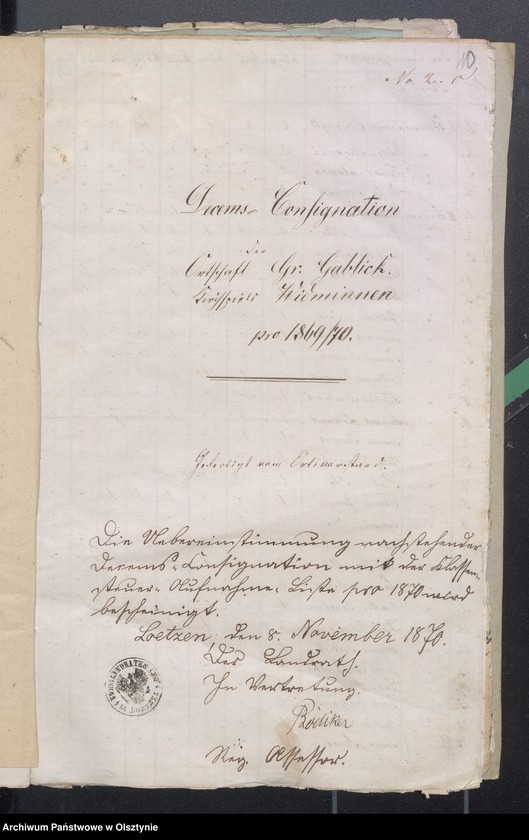 10
No. 2.
Decems-Consignation
der
Ortschaft Gr. Gablick.
Kirchspiels Widminnen
pro 1869/70.
vom Ortsvorstand.
Die Uebereinstimmung nachstehender
Decems-Consignation mit der Klassen-
steuer-Aufnahme-Liste pro 1870 wird
bescheinigt.
Loetzen, den 8. November 1870.
Der Landrath.
In Vertretung.
Reg. Assessor.
Archiwum Państwowe w Olsztynie